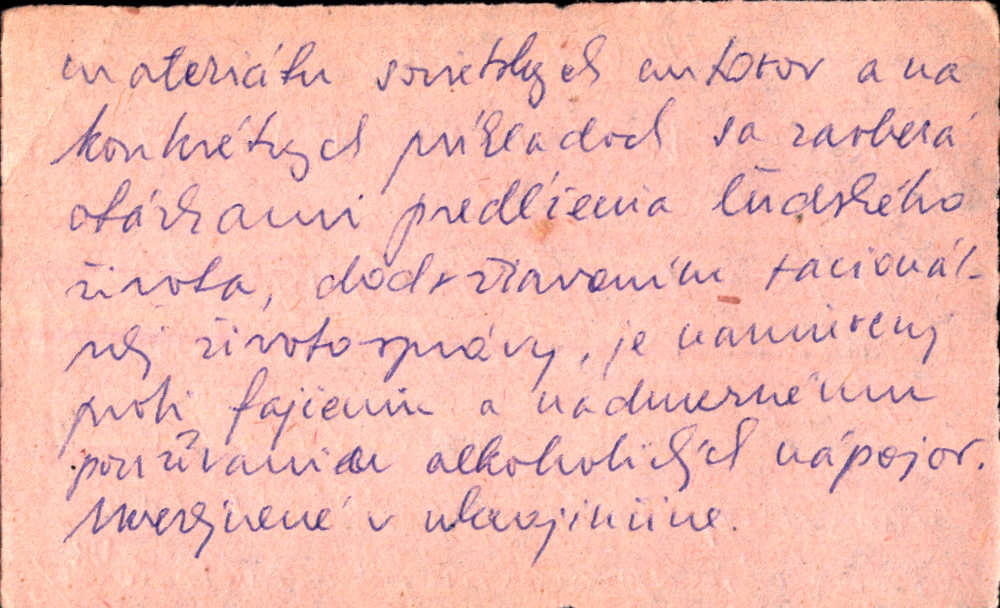 materiálu sovietskych autorov a na
konkrétnych príkladoch sa zaoberá
otázkami predĺženia ľudského
života, dodržiavaním racionál-
nej životosprávy, je namierený
proti fajčeniu a nadmernému
používaniu alkoholických nápojov.
Uverejnené v ukrajinčine.